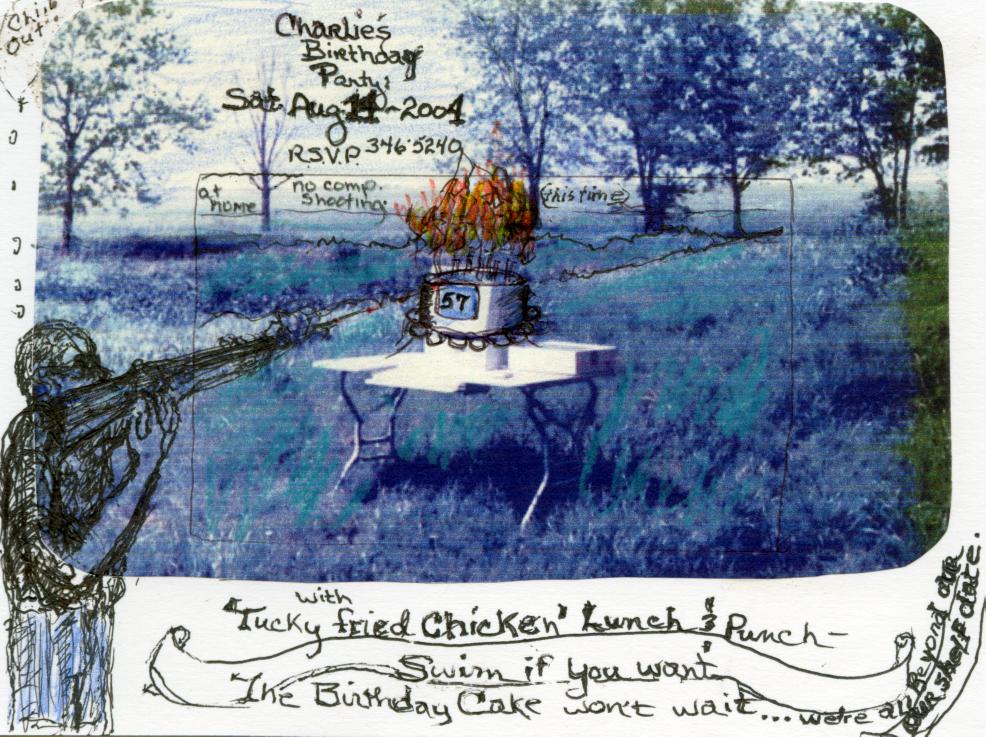 Chill
Out!
Charlie's
Birthday
Party!
Sat Aug 11-2001
R.S.V.P. 346-5240
at home
no comp. shooting.
(this time)
57
with
"Tucky fried Chicken" Lunch & Punch-
Swim if you want
The Birthday Cake won't wait... we're all Beyond our
our shelf date.